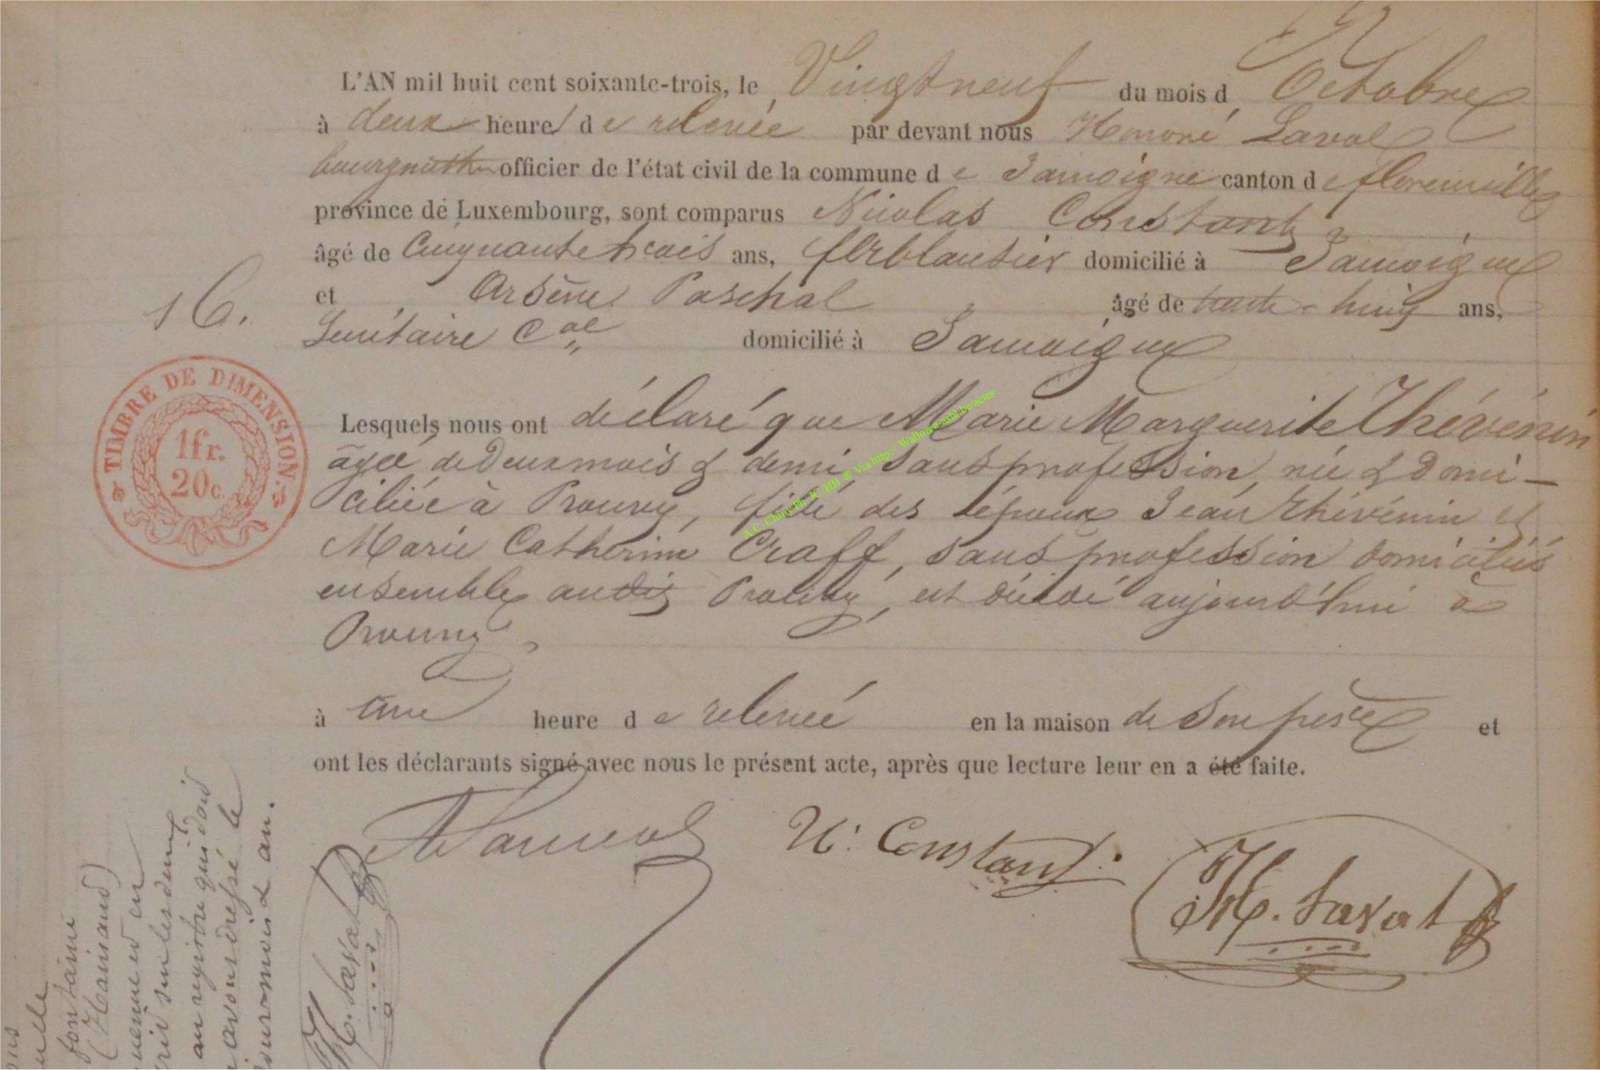 L'AN mil huit cent soixante-trois, le Vingt neuf du mois d Octobre
à deux heure de relevée par devant nous Honoré Laval
bourgmestre officier de l'état civil de la commune de Jamoigne canton de florenville
province de Luxembourg, sont comparus Nicolas Constant
âgé de Cinquante trois ans, ferblantier domicilié à Jamoigne
16.
et Arsène Paschal âgé de trente-huit ans,
Secrétaire C.al domicilié à Jamoigne
TIMBRE DE DIMENSION.
1fr.
20c.
Lesquels nous ont déclaré que Marie Marguerite Thévenin
âgée de deux mois & demi sans profession, née & domi-
ciliée à Prouvy, fille des époux Jean Thévenin et
Marie Catherine Craff, sans profession domiciliés
ensemble audit Prouvy, est décédé aujourd'hui à
Prouvy,
à une heure de relevée en la maison de son père et
ont les déclarants signé avec nous le présent acte, après que lecture leur en a été faite.
N. Constant.
H. Laval
H. Laval
fontaine
(Hainaud)
au registre qui doit
avons dressé le
jour mois & an.